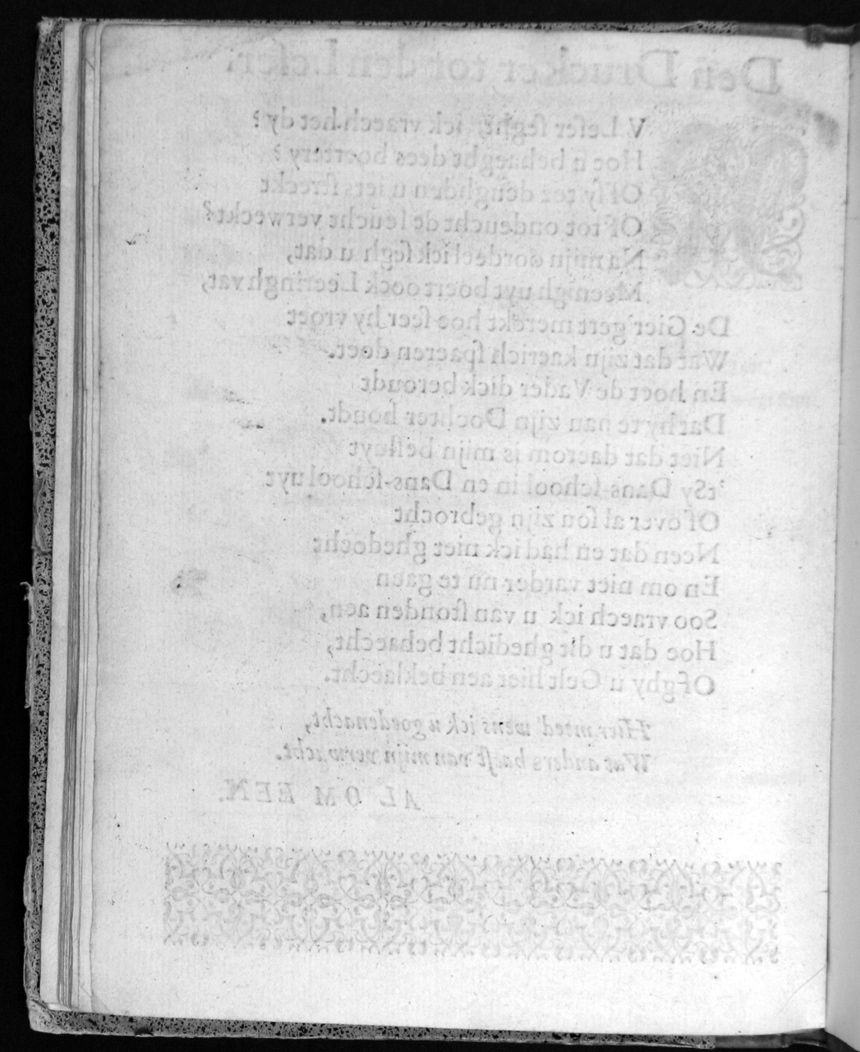 Den Drucker tot den Leser.
NV Leser seght, ick vraech het dy?
Hoe u behaeght dees boertery?
Of sy tot deughden u iets streckt
Of tot ondeucht de ieucht verweckt?
Na mijn oordeel ick segh u dat,
Meenigh uyt boert oock Leeringh vat,
De Gier'gert merckt hoe seer hy vroet
Wat dat zijn kaerich spaeren doet.
En hoet de Vader dick beroudt
Dat hy te nau zijn Dochter houdt.
Niet dat daerom is mijn besluyt
'tSy Dans-school in en Dans-school uyt
Of over al sou zijn gebrocht
Neen dat en had ick niet ghedocht
En om niet varder nu te gaen
Soo vraech ick u van stonden aen,
Hoe dat u dit ghedicht behaecht,
Of ghy u Gelt hier aen beklaecht.
Hier meed' wens ick u goedenacht,
Wat anders haest van mijn verwacht.
AL OM EEN.